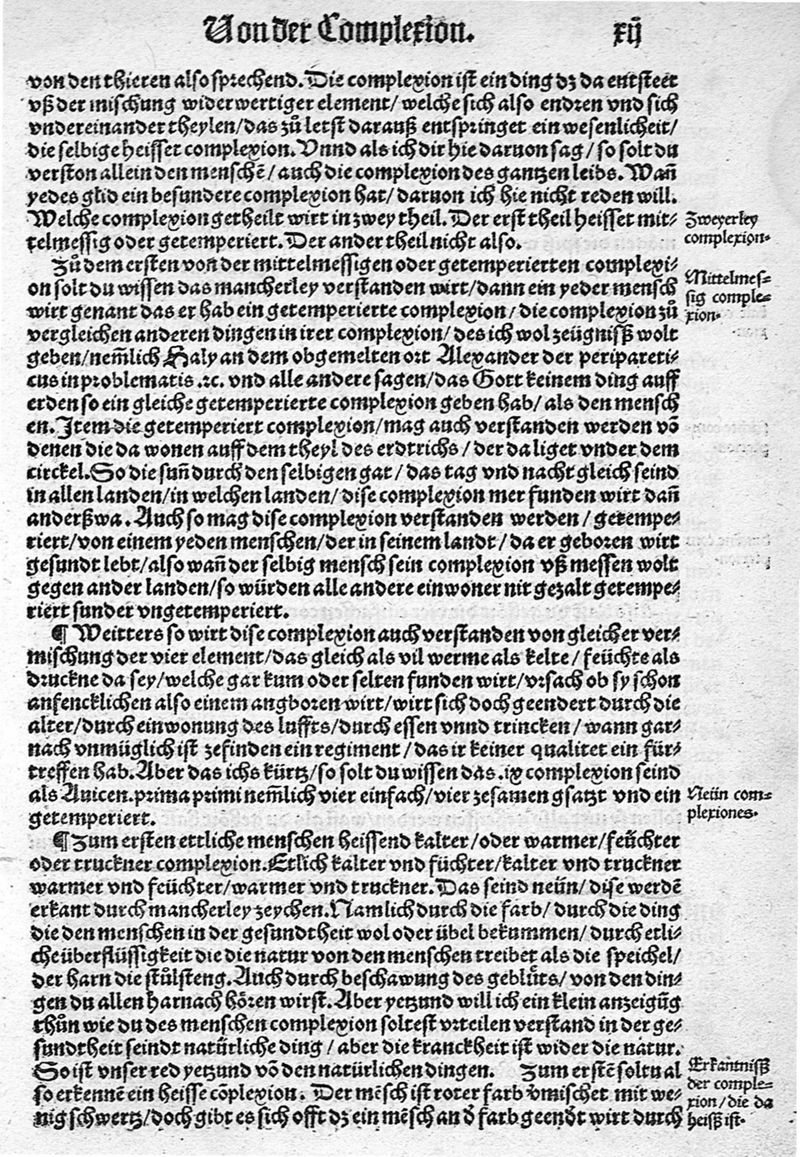 Von der Complexion.
xij
von den thieren also sprechend. Die complexion ist ein ding dz da entsteet
vß der mischung widerwertiger element/ welche sich also endren vnd sich
vndereinander theylen/das zů letst darauß entspringet ein wesenlicheit/
die selbige heisset complexion. Vnnd als ich dir hie daruon sag/ so solt du
verston allein den menschẽ/ auch die complexion des gantzen leibs. Wañ
yedes glid ein besundere complexion hat/ daruon ich hie nicht reden will.
Welche complexion getheilt wirt in zwey theil. Der erst theil heisset mit⸗
telmessig oder getemperiert. Der ander theil nicht also.
Zweyerley
complexion.
Zů dem ersten von der mittelmessigen oder getemperierten complexi⸗
on solt du wissen das mancherley verstanden wirt/dann ein yeder mensch
wirt genant das er hab ein getemperierte complexion/ die complexion zů
vergleichen anderen dingen in irer complexion/ des ich wol zeügnisß wolt
geben/nem̃lich Haly an dem obgemelten ort Alexander der peripareti⸗
cus in problematis.⁊c. vnd alle andere sagen/das Gott keinem ding auff
erden so ein gleiche getemperierte complexion geben hab/ als den mensch
en. Item die getemperiert complexion/mag auch verstanden werden võ
denen die da wonen auff dem theyl des erdtrichs/ der da liget vnder dem
circkel. So die sun̄ durch den selbigen gat/ das tag vnd nacht gleich seind
in allen landen/in welchen landen/ dise complexion mer funden wirt dañ
anderßwa. Auch so mag dise complexion verstanden werden/ getempe⸗
riert/von einem yeden menschen/der in seinem landt/ da er geboren wirt
gesundt lebt/also wañ der selbig mensch sein complexion vß messen wolt
gegen ander landen/so würden alle andere einwoner nit gezalt getempe⸗
riert sunder vngetemperiert.
Mittelmes⸗
sig comple⸗
xion.
¶ Weitters so wirt dise complexion auch verstanden von gleicher ver⸗
mischung der vier element/das gleich als vil werme als kelte/ feüchte als
druckne da sey/welche gar kum oder selten funden wirt/vrsach ob sy schon
anfencklichen also einem angboren wirt/wirt sich doch geendert durch die
alter/durch einwonung des luffts/durch essen vnnd trincken/ wann gar⸗
nach vnmüglich ist zefinden ein regiment/ das ir keiner qualitet ein für⸗
treffen hab. Aber das ichs kürtz/so solt du wissen das .ix complexion seind
als Auicen.prima primi nem̃lich vier einfach/vier zesamen gsatzt vnd ein
getemperiert.
Neün com⸗
plexiones.
¶ Zum ersten ettliche menschen heissend kalter/oder warmer/feüchter
oder truckner complexion. Etlich kalter vnd füchter/kalter vnd truckner
warmer vnd feüchter/warmer vnd truckner. Das seind neün/ dise werdẽ
erkant durch mancherley zeychen. Namlich durch die farb/ durch die ding
die den menschen in der gesundtheit wol oder übel bekummen/ durch etli⸗
che überflüssigkeit die die natur von den menschen treibet als die speichel/
der harn die stůlsteng. Auch durch beschawung des geblüts/ von den din⸗
gen du allen harnach hören wirst. Aber yetzund will ich ein klein anzeigũg
thůn wie du des menschen complexion soltest vrteilen verstand in der ge⸗
sundtheit seindt natürliche ding/ aber die kranckheit ist wider die natur.
So ist vnser red yetzund võ den natürlichen dingen. Zum erstẽ soltu al
so erkennẽ ein heisse cõplexion. Der mẽsch ist roter farb v̄mischet mit we⸗
nig schwertz/doch gibt es sich offt dz ein mẽsch an d̄ farb geend̄t wirt durch
Erkañtnisß
der comple⸗
xion/die da
heisß ist.